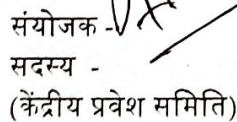 संयोजक -
सदस्य -
(केंद्रीय प्रवेश समिति)